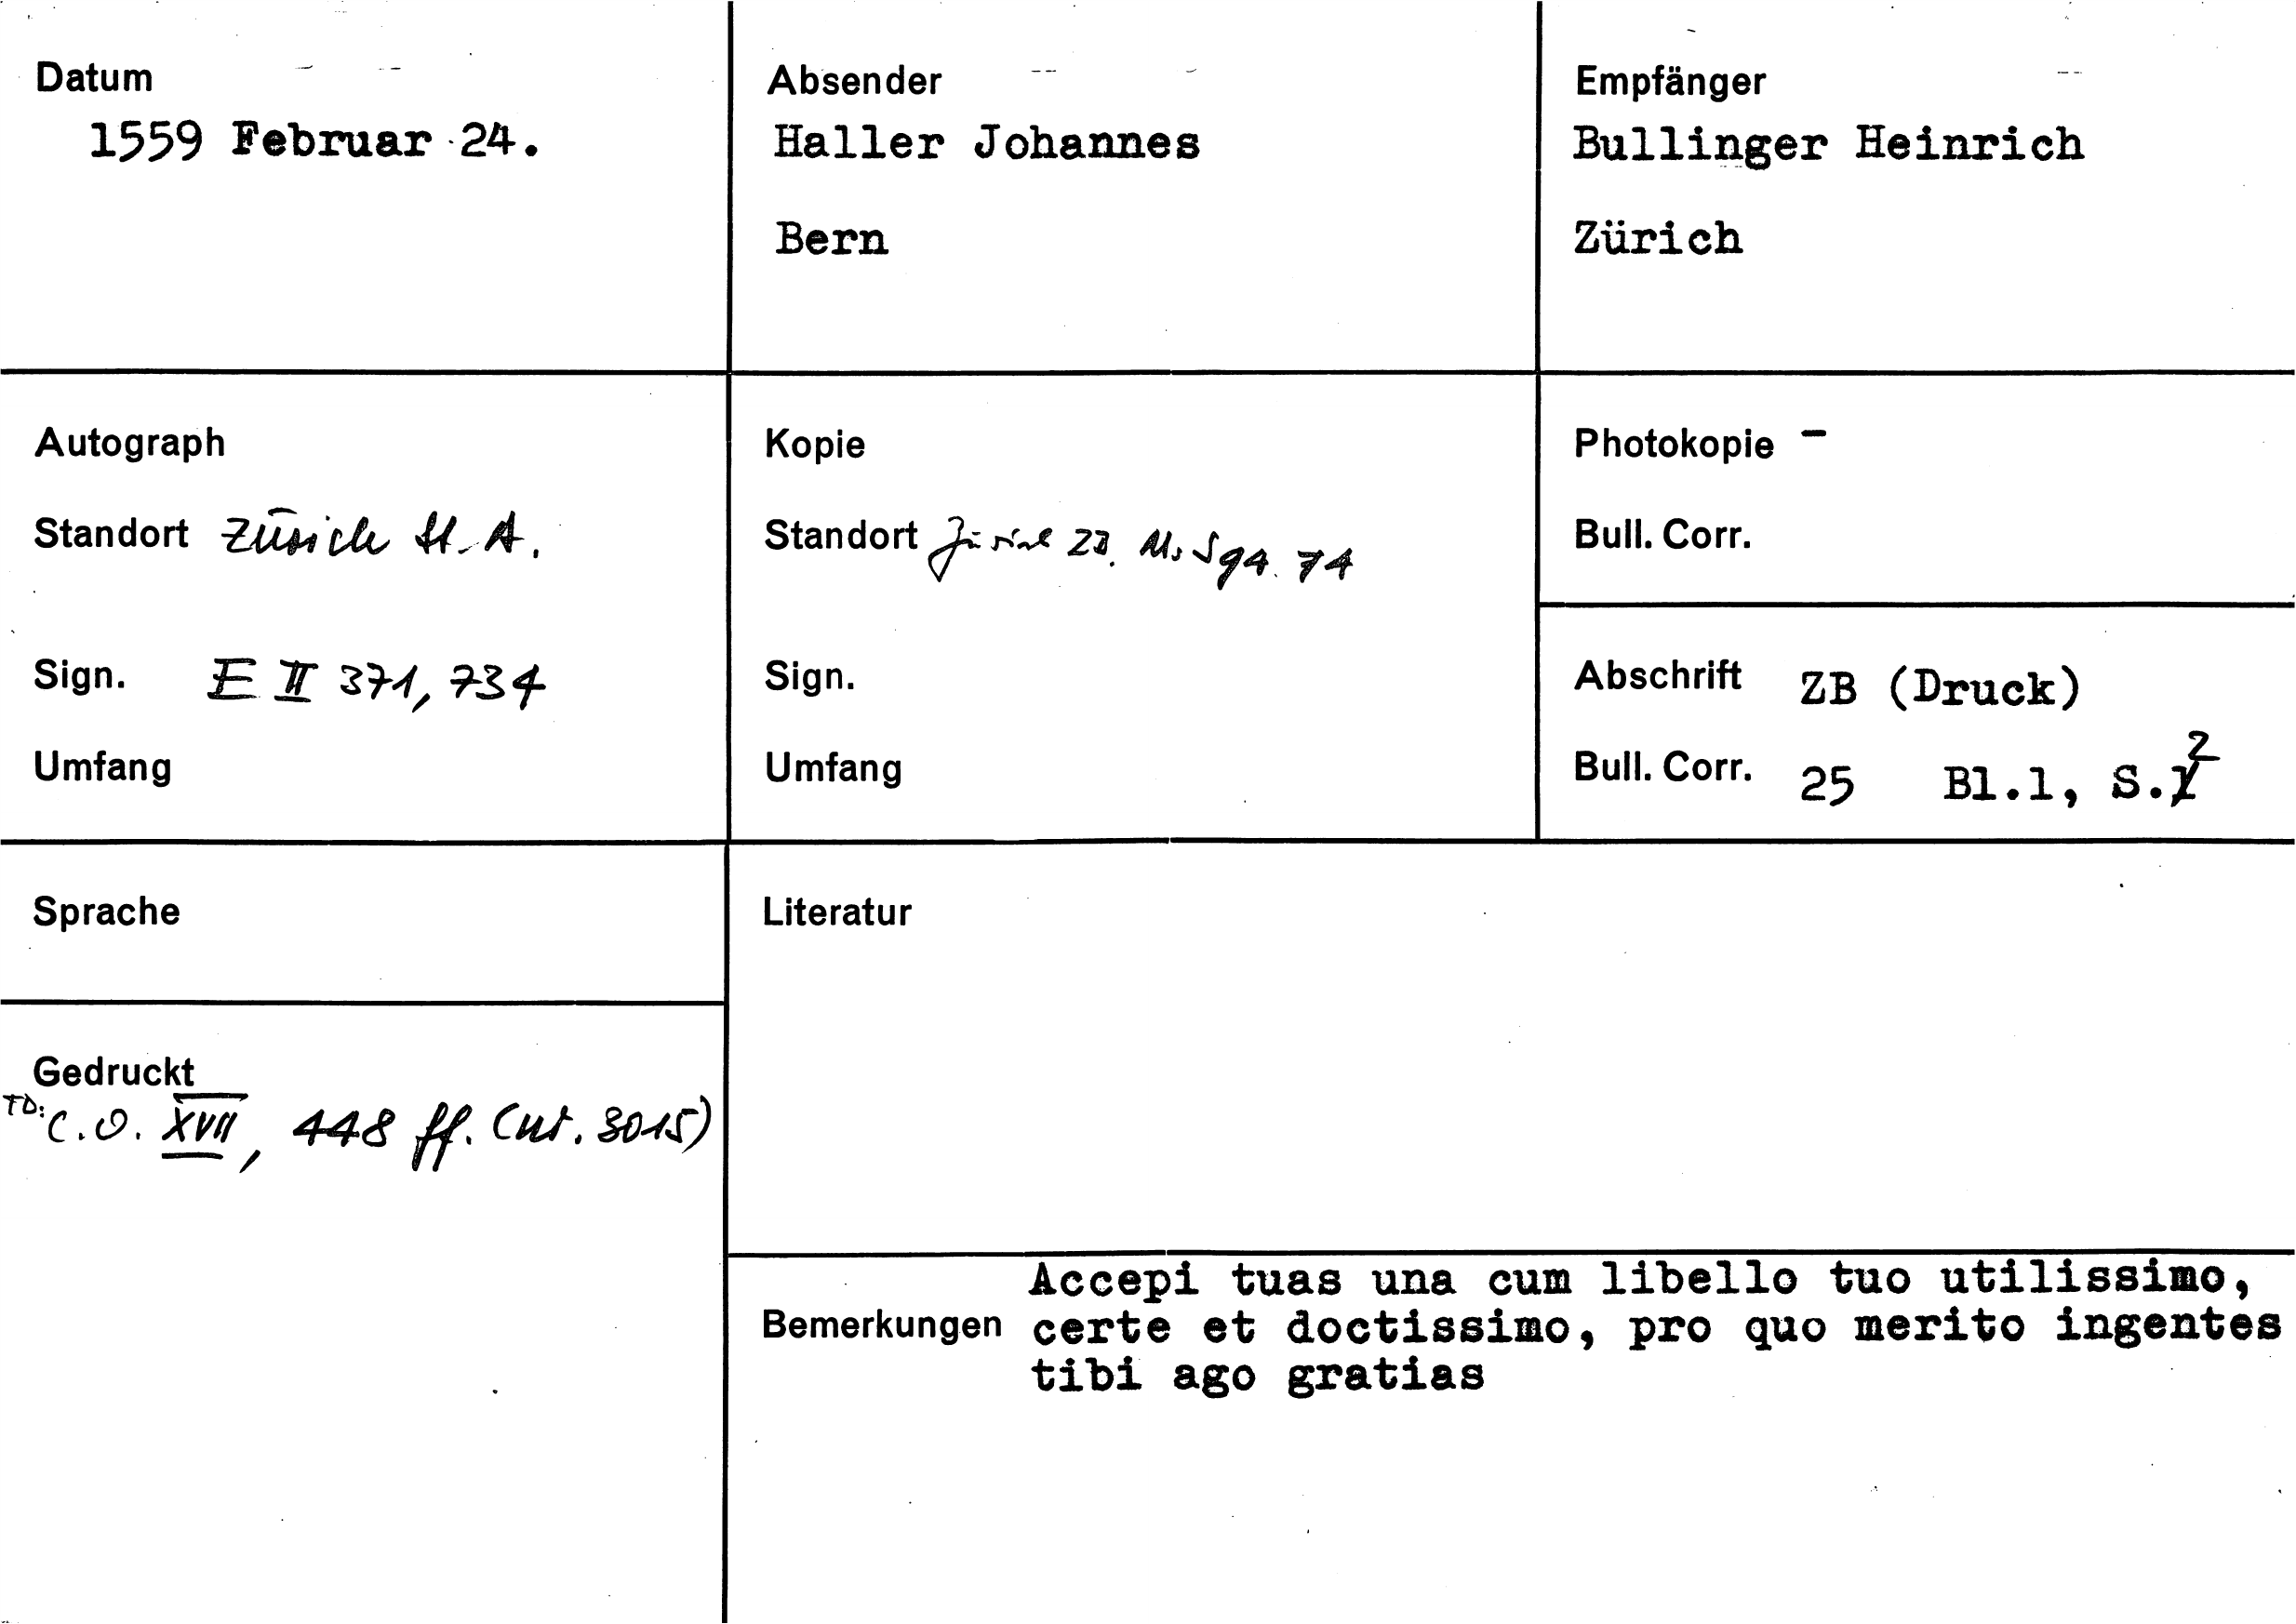 Datum
1559 Februar 24.
Absender
Haller Johannes
Bern
Empfänger
Bullinger Heinrich
Zürich
Autograph
Standort Zürich St. A.
Sign. E II 371, 734
Umfang
Kopie
Standort Zürich ZB. Ms S 94. 74
Sign.
Umfang
Photokopie -
Bull. Corr.
Abschrift ZB (Druck)
Bull. Corr. 25 Bl.1, S.2
Sprache
Gedruckt
TD: C.O. XVII, 448 ff. (Nr. 3015)
Literatur
Bemerkungen
Accepi tuas una cum libello tuo utilissimo,
certe et doctissimo, pro quo merito ingentes
tibi ago gratias